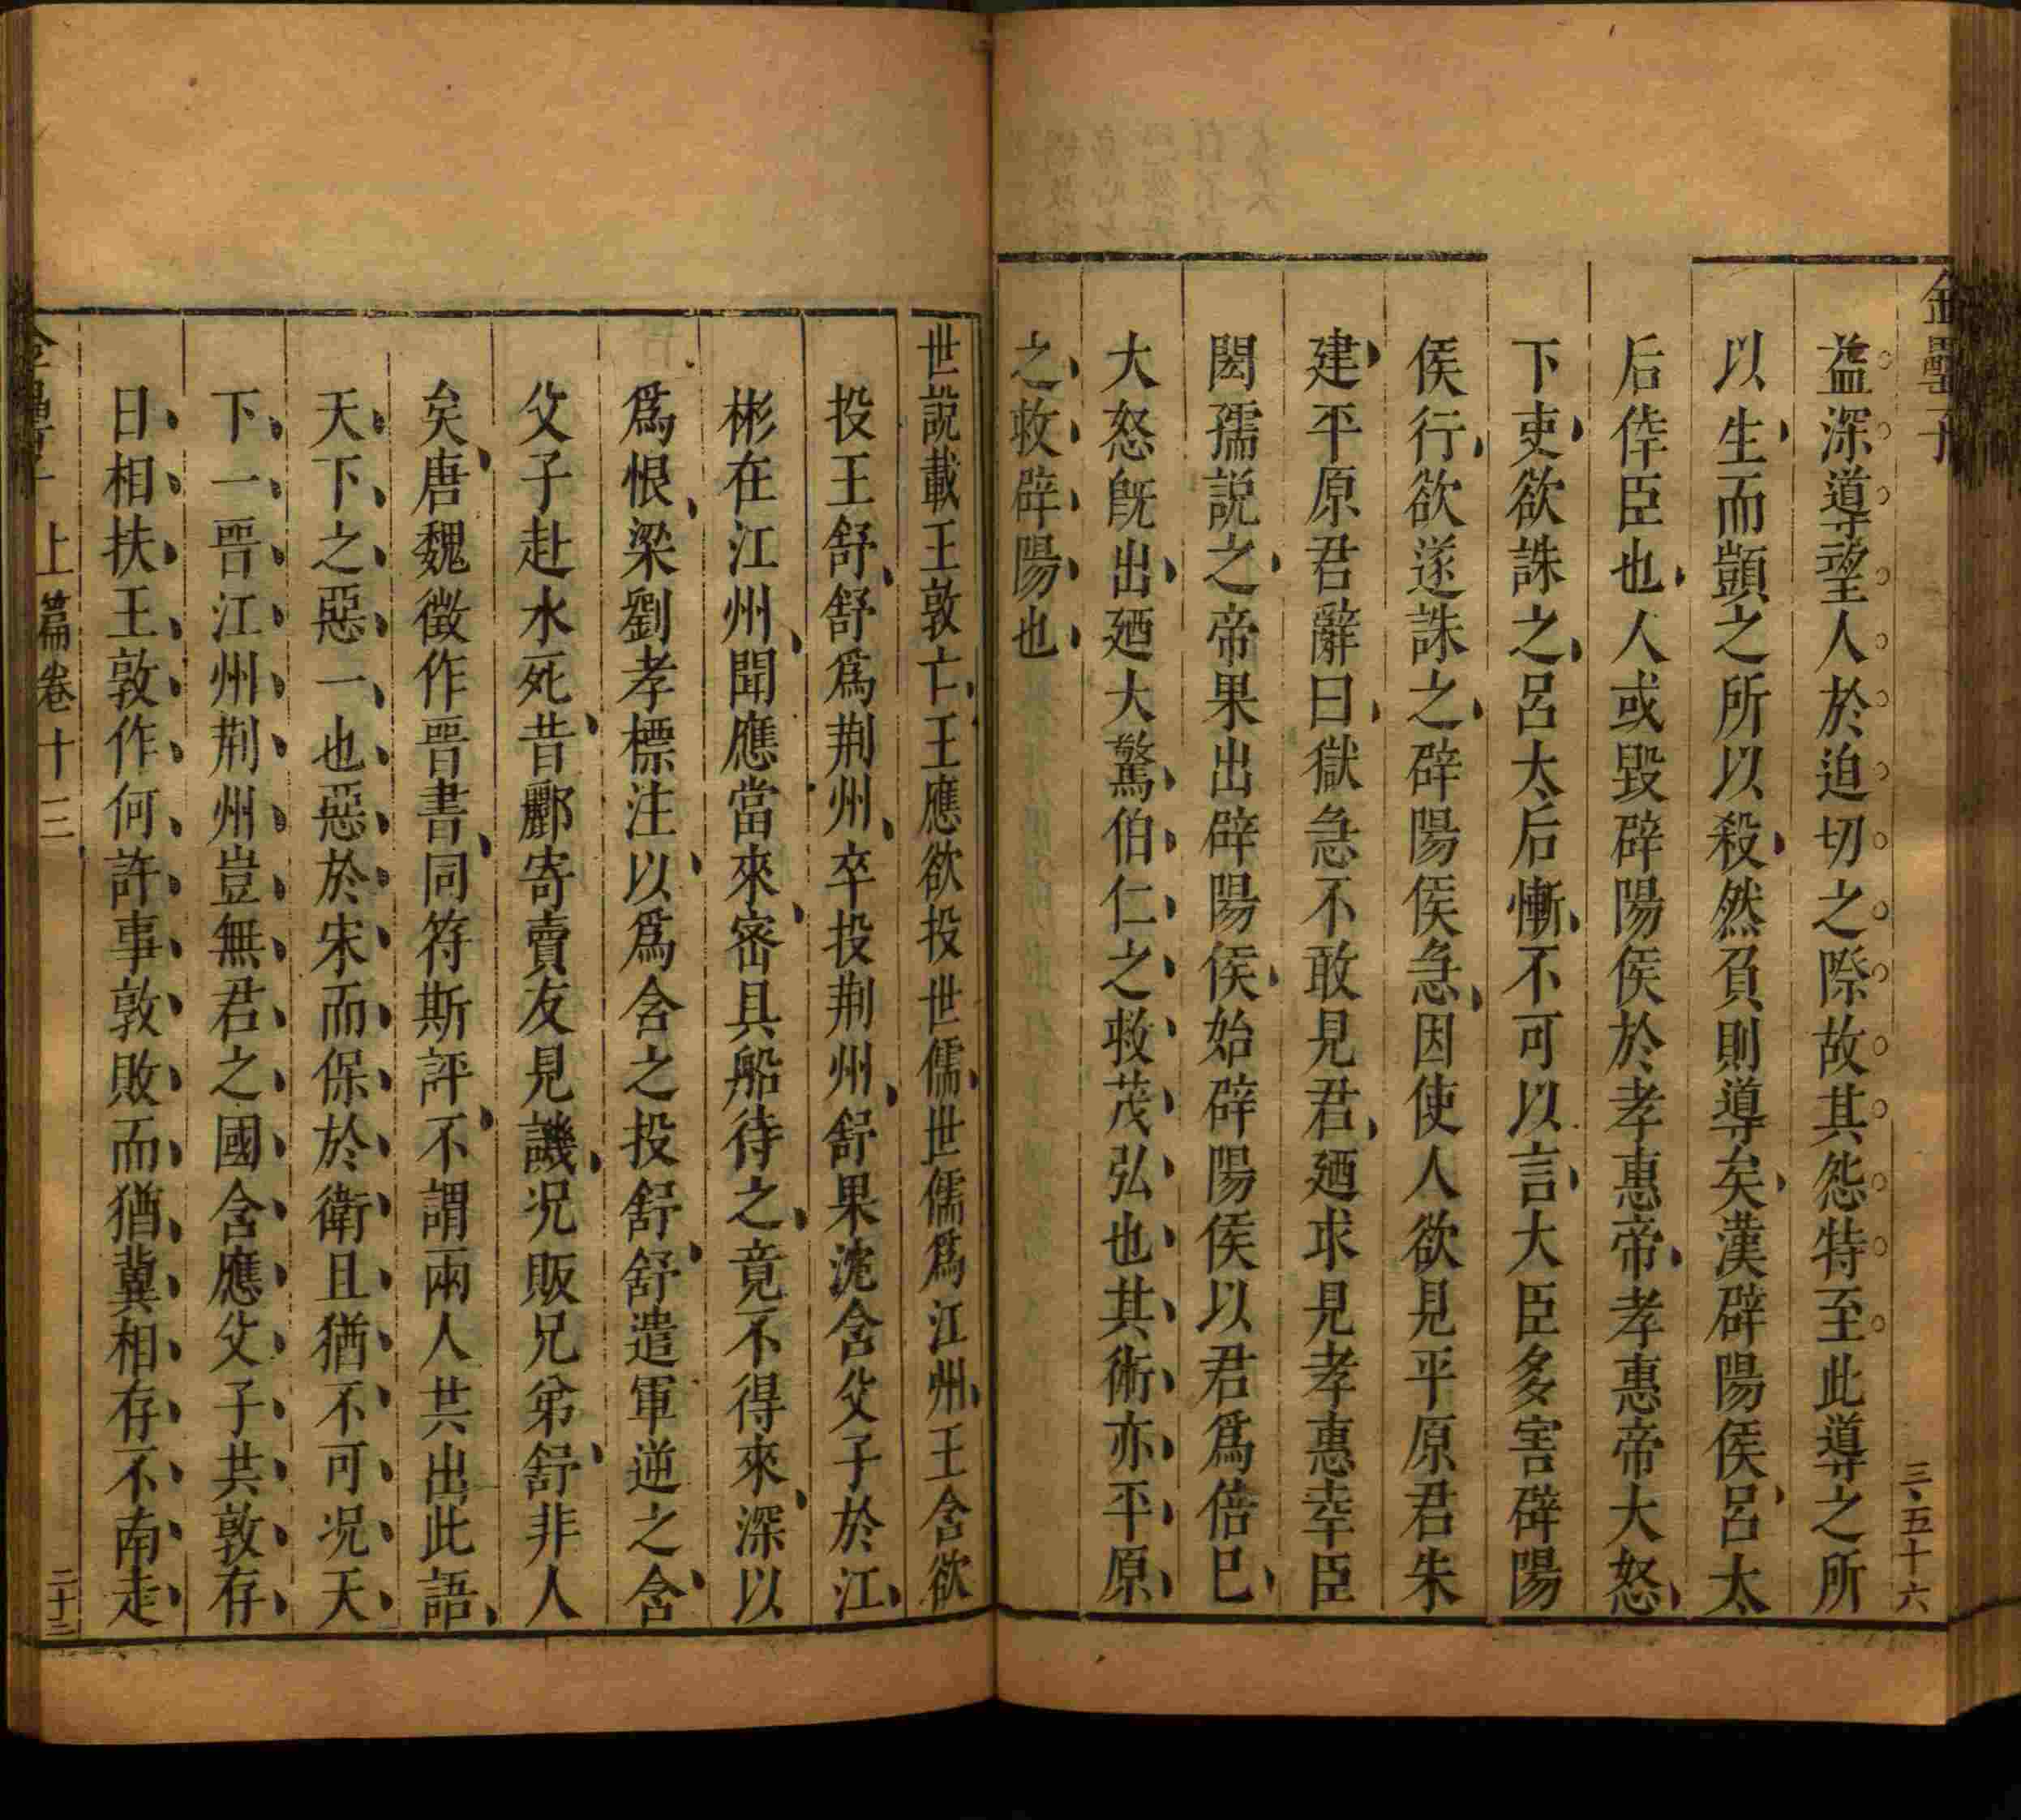 金罍子
三五十六
益深導望人於迫切之際故其怨特至此導之所
以生而顗之所以殺然負則導矣漢辟陽侯呂太
后倖臣也人或毀辟陽侯於孝惠帝孝惠帝大怒
下吏欲誅之呂太后慚不可以言大臣多害辟陽
侯行欲遂誅之辟陽侯急因使人欲見平原君朱
建平原君辭曰獄急不敢見君廼求見孝惠幸臣
閎孺説之帝果出辟陽侯始辟陽侯以君爲倍已
大怒旣出廼大驚伯仁之救茂弘也其術亦平原
之救辟陽也
世說載王敦亡王應欲投世儒世儒爲江州王含欲
投王舒舒爲荆州卒投荆州舒果沈含父子於江
彬在江州聞應當來宻具船待之竟不得來深以
爲恨梁劉孝標注以爲含之投舒舒遣軍逆之含
父子赴水死昔酈寄賣友見譏况販兄弟舒非人
矣唐魏徵作晋書同符斯評不謂兩人共出此語
天下之惡一也惡於宋而保於衛且猶不可况天
下一晋江州荆州豈無君之國含應父子共敦存
日相扶王敦作何許事敦敗而猶冀相存不南走
金罍子 上篇卷十三
二十三